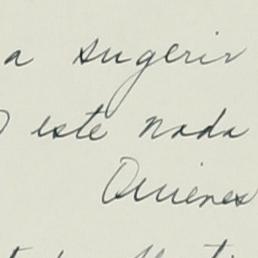 a sugerir
este nada
Quienes